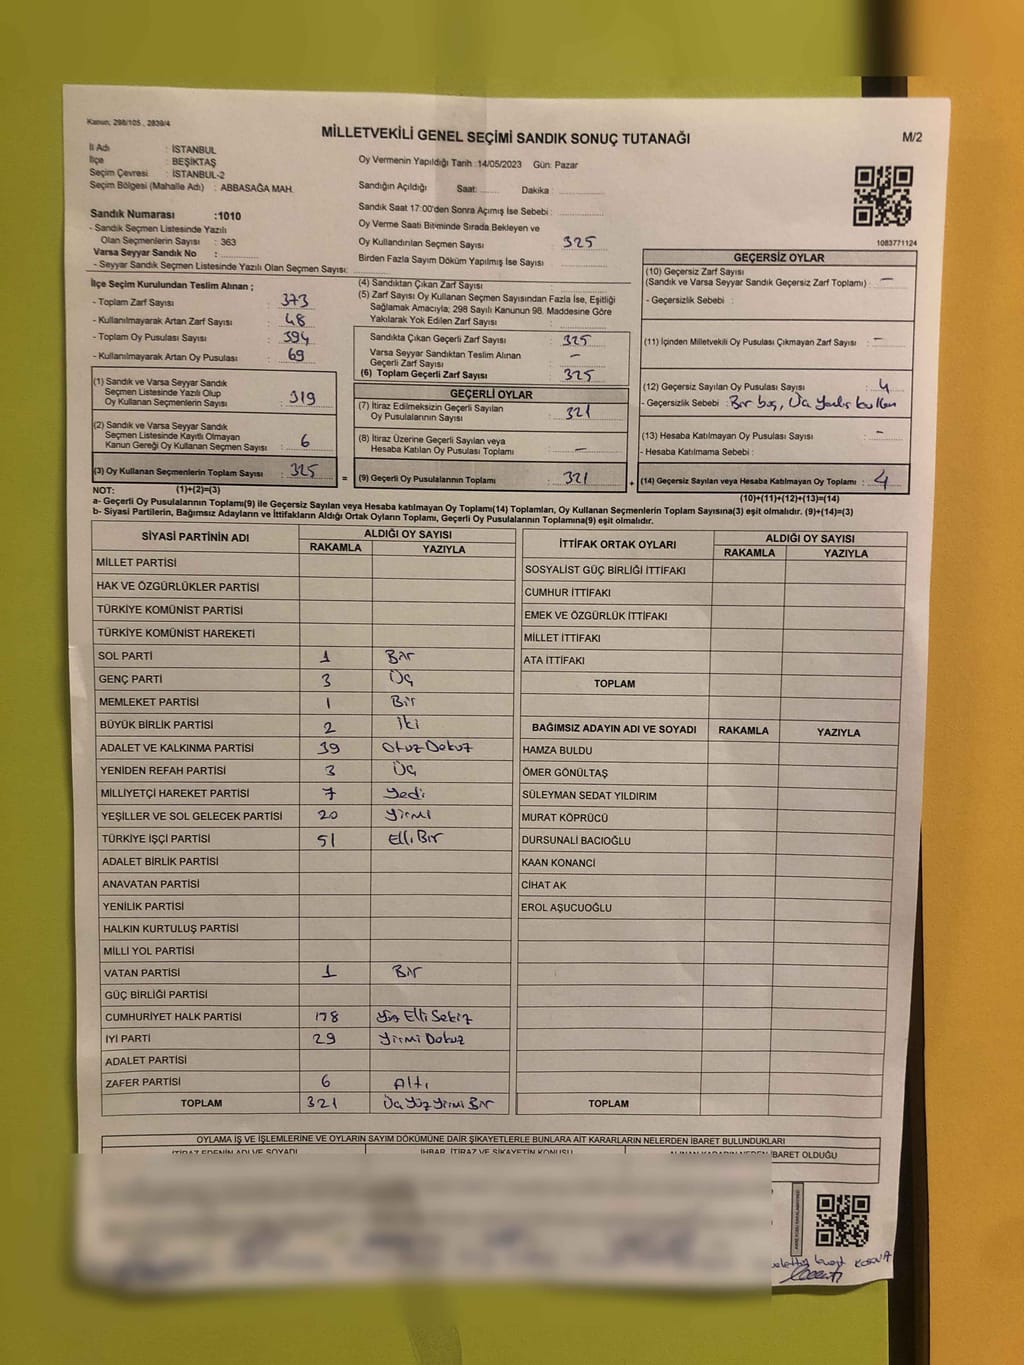 Kanun; 298/105 , 2839/4
MİLLETVEKİLİ GENEL SEÇİMİ SANDIK SONUÇ TUTANAĞI
M/2
İl Adı : İSTANBUL
İlçe : BEŞİKTAŞ
Seçim Çevresi : İSTANBUL-2
Seçim Bölgesi (Mahalle Adı) : ABBASAĞA MAH.
Sandık Numarası :1010
- Sandık Seçmen Listesinde Yazılı
Olan Seçmenlerin Sayısı : 363
Varsa Seyyar Sandık No :
- Seyyar Sandık Seçmen Listesinde Yazılı Olan Seçmen Sayısı:
Oy Vermenin Yapıldığı Tarih :14/05/2023 Gün: Pazar
Sandığın Açıldığı Saat: Dakika :
Sandık Saat 17:00'den Sonra Açımış İse Sebebi :
Oy Verme Saati Bitiminde Sırada Bekleyen ve
Oy Kullandırılan Seçmen Sayısı : 325
Birden Fazla Sayım Döküm Yapılmış İse Sayısı :
1083771124
İlçe Seçim Kurulundan Teslim Alınan ;
- Toplam Zarf Sayısı : 373
- Kullanılmayarak Artan Zarf Sayısı : 48
- Toplam Oy Pusulası Sayısı : 394
- Kullanılmayarak Artan Oy Pusulası : 69
(1) Sandık ve Varsa Seyyar Sandık
Seçmen Listesinde Yazılı Olup
Oy Kullanan Seçmenlerin Sayısı : 319
(2) Sandık ve Varsa Seyyar Sandık
Seçmen Listesinde Kayıtlı Olmayan
Kanun Gereği Oy Kullanan Seçmen Sayısı : 6
(3) Oy Kullanan Seçmenlerin Toplam Sayısı : 325
(4) Sandıktan Çıkan Zarf Sayısı :
(5) Zarf Sayısı Oy Kullanan Seçmen Sayısından Fazla İse, Eşitliği
Sağlamak Amacıyla; 298 Sayılı Kanunun 98. Maddesine Göre
Yakılarak Yok Edilen Zarf Sayısı :
Sandıkta Çıkan Geçerli Zarf Sayısı : 325
Varsa Seyyar Sandıktan Teslim Alınan
Geçerli Zarf Sayısı : -
(6) Toplam Geçerli Zarf Sayısı : 325
GEÇERLİ OYLAR
(7) İtiraz Edilmeksizin Geçerli Sayılan
Oy Pusulalarının Sayısı : 321
(8) İtiraz Üzerine Geçerli Sayılan veya
Hesaba Katılan Oy Pusulası Toplamı : -
= (9) Geçerli Oy Pusulalarının Toplamı : 321
GEÇERSİZ OYLAR
(10) Geçersiz Zarf Sayısı
(Sandık ve Varsa Seyyar Sandık Geçersiz Zarf Toplamı) : -
- Geçersizlik Sebebi :
(11) İçinden Milletvekili Oy Pusulası Çıkmayan Zarf Sayısı : -
(12) Geçersiz Sayılan Oy Pusulası Sayısı : 4
- Geçersizlik Sebebi : Bir boş, Üç
(13) Hesaba Katılmayan Oy Pusulası Sayısı : -
- Hesaba Katılmama Sebebi :
+ (14) Geçersiz Sayılan veya Hesaba Katılmayan Oy Toplamı : 4
NOT: (1)+(2)=(3)
(10)+(11)+(12)+(13)=(14)
a- Geçerli Oy Pusulalarının Toplamı(9) ile Geçersiz Sayılan veya Hesaba katılmayan Oy Toplamı(14) Toplamları, Oy Kullanan Seçmenlerin Toplam Sayısına(3) eşit olmalıdır. (9)+(14)=(3)
b- Siyasi Partilerin, Bağımsız Adayların ve İttifakların Aldığı Ortak Oyların Toplamı, Geçerli Oy Pusulalarının Toplamına(9) eşit olmalıdır.
SİYASİ PARTİNİN ADI ALDIĞI OY SAYISI
RAKAMLA YAZIYLA
MİLLET PARTİSİ
HAK VE ÖZGÜRLÜKLER PARTİSİ
TÜRKİYE KOMÜNİST PARTİSİ
TÜRKİYE KOMÜNİST HAREKETİ
SOL PARTİ 1 Bir
GENÇ PARTİ 3 Üç
MEMLEKET PARTİSİ 1 Bir
BÜYÜK BİRLİK PARTİSİ 2 İki
ADALET VE KALKINMA PARTİSİ 39 Otuz Dokuz
YENİDEN REFAH PARTİSİ 3 Üç
MİLLİYETÇİ HAREKET PARTİSİ 7 Yedi
YEŞİLLER VE SOL GELECEK PARTİSİ 20 Yirmi
TÜRKİYE İŞÇİ PARTİSİ 51 Elli Bir
ADALET BİRLİK PARTİSİ
ANAVATAN PARTİSİ
YENİLİK PARTİSİ
HALKIN KURTULUŞ PARTİSİ
MİLLİ YOL PARTİSİ
VATAN PARTİSİ 1 Bir
GÜÇ BİRLİĞİ PARTİSİ
CUMHURİYET HALK PARTİSİ 158 Yüz Elli Sekiz
İYİ PARTİ 29 Yirmi Dokuz
ADALET PARTİSİ
ZAFER PARTİSİ 6 Altı
TOPLAM 321 Üç Yüz Yirmi Bir
İTTİFAK ORTAK OYLARI ALDIĞI OY SAYISI
RAKAMLA YAZIYLA
SOSYALİST GÜÇ BİRLİĞİ İTTİFAKI
CUMHUR İTTİFAKI
EMEK VE ÖZGÜRLÜK İTTİFAKI
MİLLET İTTİFAKI
ATA İTTİFAKI
TOPLAM
BAĞIMSIZ ADAYIN ADI VE SOYADI RAKAMLA YAZIYLA
HAMZA BULDU
ÖMER GÖNÜLTAŞ
SÜLEYMAN SEDAT YILDIRIM
MURAT KÖPRÜCÜ
DURSUNALİ BACIOĞLU
KAAN KONANCİ
CİHAT AK
EROL AŞUCUOĞLU
TOPLAM
OYLAMA İŞ VE İŞLEMLERİNE VE OYLARIN SAYIM DÖKÜMÜNE DAİR ŞİKAYETLERLE BUNLARA AİT KARARLARIN NELERDEN İBARET BULUNDUKLARI
İTİRAZ EDENİN ADI VE SOYADI İHBAR, İTİRAZ VE ŞİKAYETİN KONUSU İBARET OLDUĞU